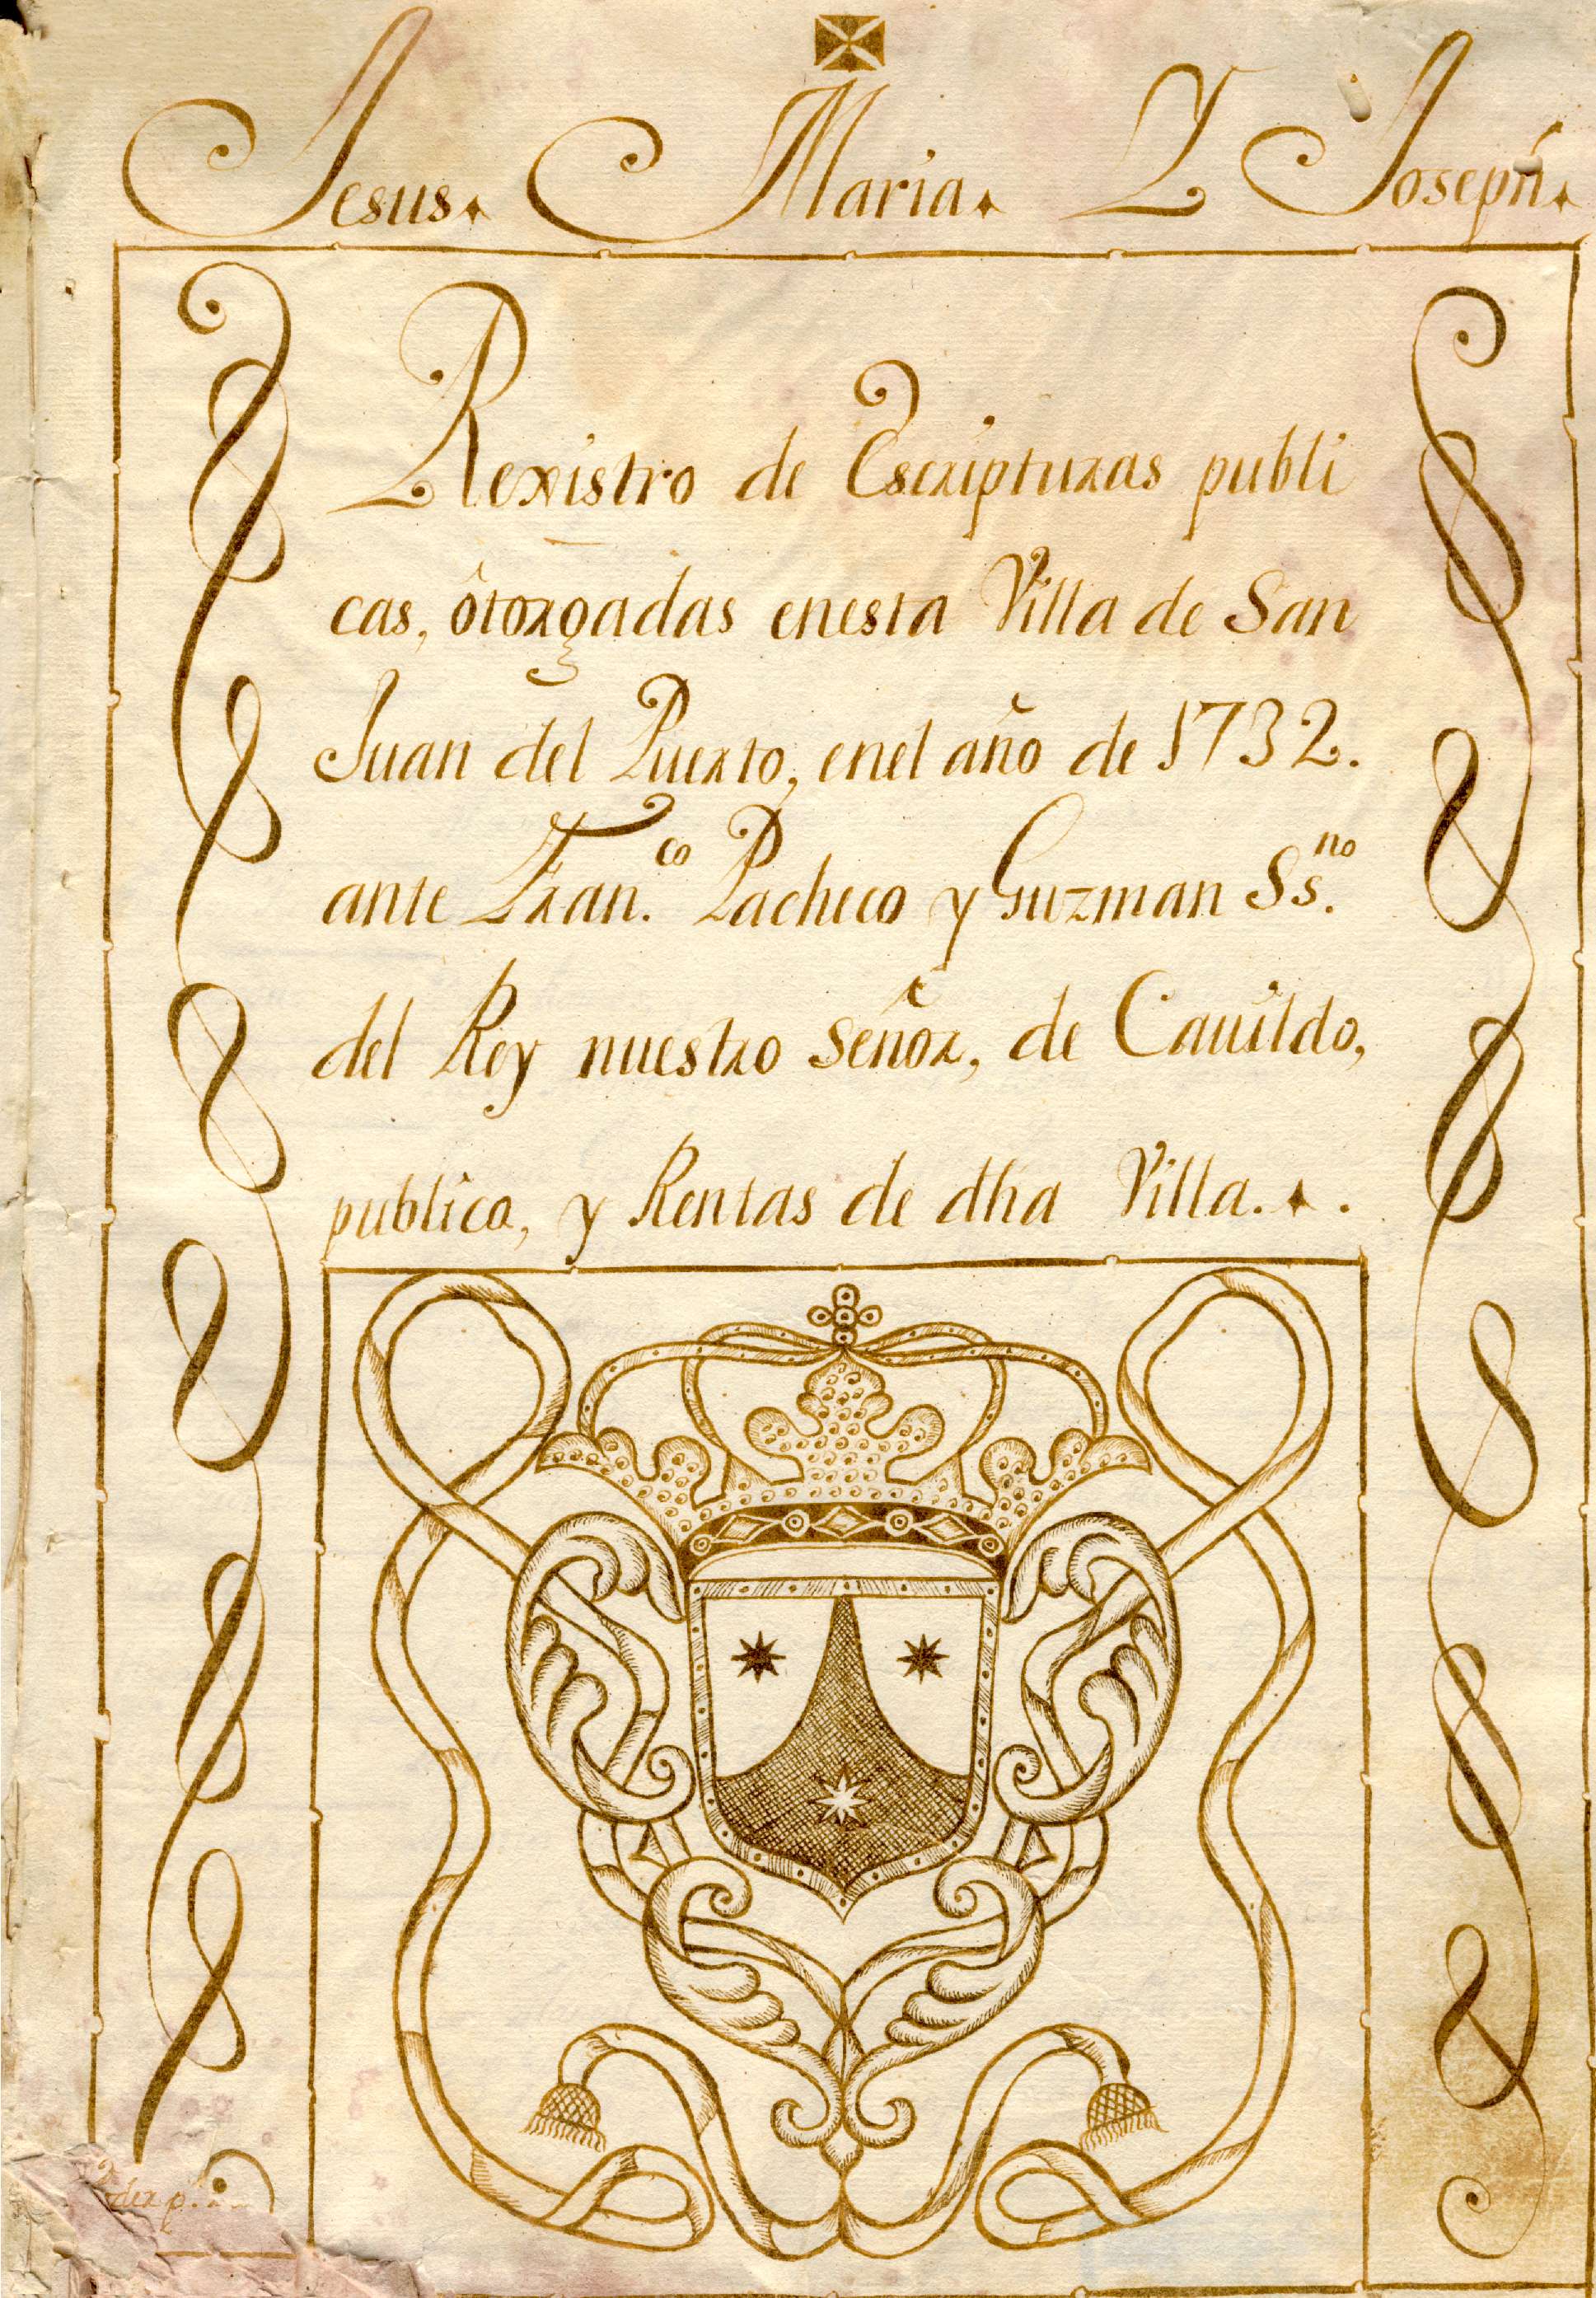 Jesus. Maria. Y Joseph.
Rexistro de Escripturas publi
cas, ôtorgadas enesta Villa de San
Juan del Puerto, enel año de 1732.
ante Fran.co Pacheco y Guzman Ss.no
del Rey nuestro Señor, de Cauildo,
publico, y Rentas de dha Villa.